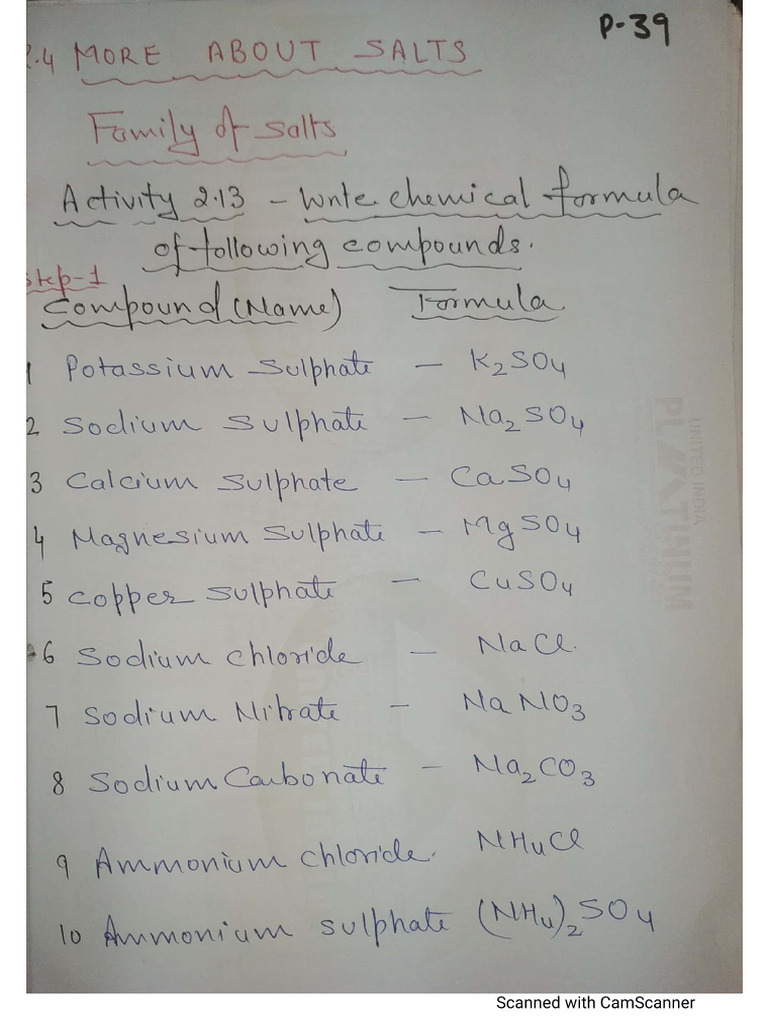 P-39
2.4 MORE ABOUT SALTS
Family of salts
Activity 2.13 - Write chemical formula
of following compounds.
Step-1
Compound (Name) Formula
1 Potassium Sulphate - K2SO4
2 Sodium Sulphate - Na2SO4
3 Calcium Sulphate - CaSO4
4 Magnesium Sulphate - MgSO4
5 Copper Sulphate - CuSO4
6 Sodium chloride - NaCl.
7 Sodium Nitrate - NaNO3
8 Sodium Carbonate - Na2CO3
9 Ammonium chloride. NH4Cl
10 Ammonium sulphate (NH4)2SO4
UNITED INDIA
Scanned with CamScanner